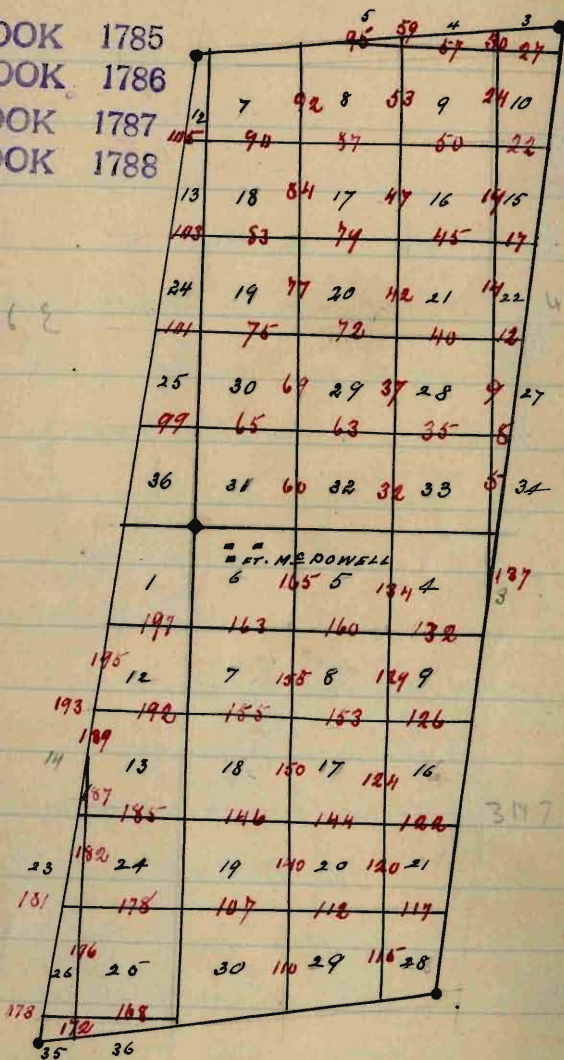 OOK 1785
OOK 1786
OOK 1787
OOK 1788
5 59 4 3
95 57 30 27
12 7 92 8 53 9 24 10
105 90 87 50 22
13 18 84 17 47 16 19 15
103 83 79 45 17
24 19 77 20 42 21 14 22
101 75 72 40 12
25 30 69 29 37 28 9 27
99 65 63 35 8
36 31 60 32 32 33 5 34
FT. McDOWELL
1 6 165 5 134 4 137
3
197 163 160 132
195 12 7 158 8 129 9
193 192 155 153 126
189
14 13 18 150 17 124 16
187
185 146 144 122
317
23 182 24 19 140 20 120 21
181 178 107 112 117
176
26 25 30 110 29 115 28
173 172 168
35 36